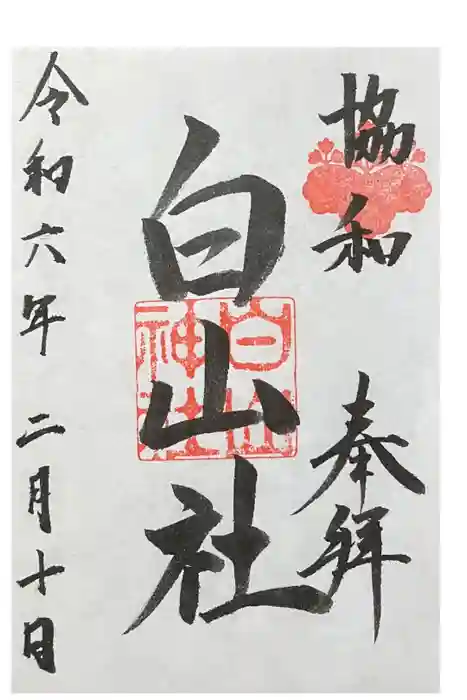 協和 奉拝
白山社
白山
神社
令和六年 二月十日